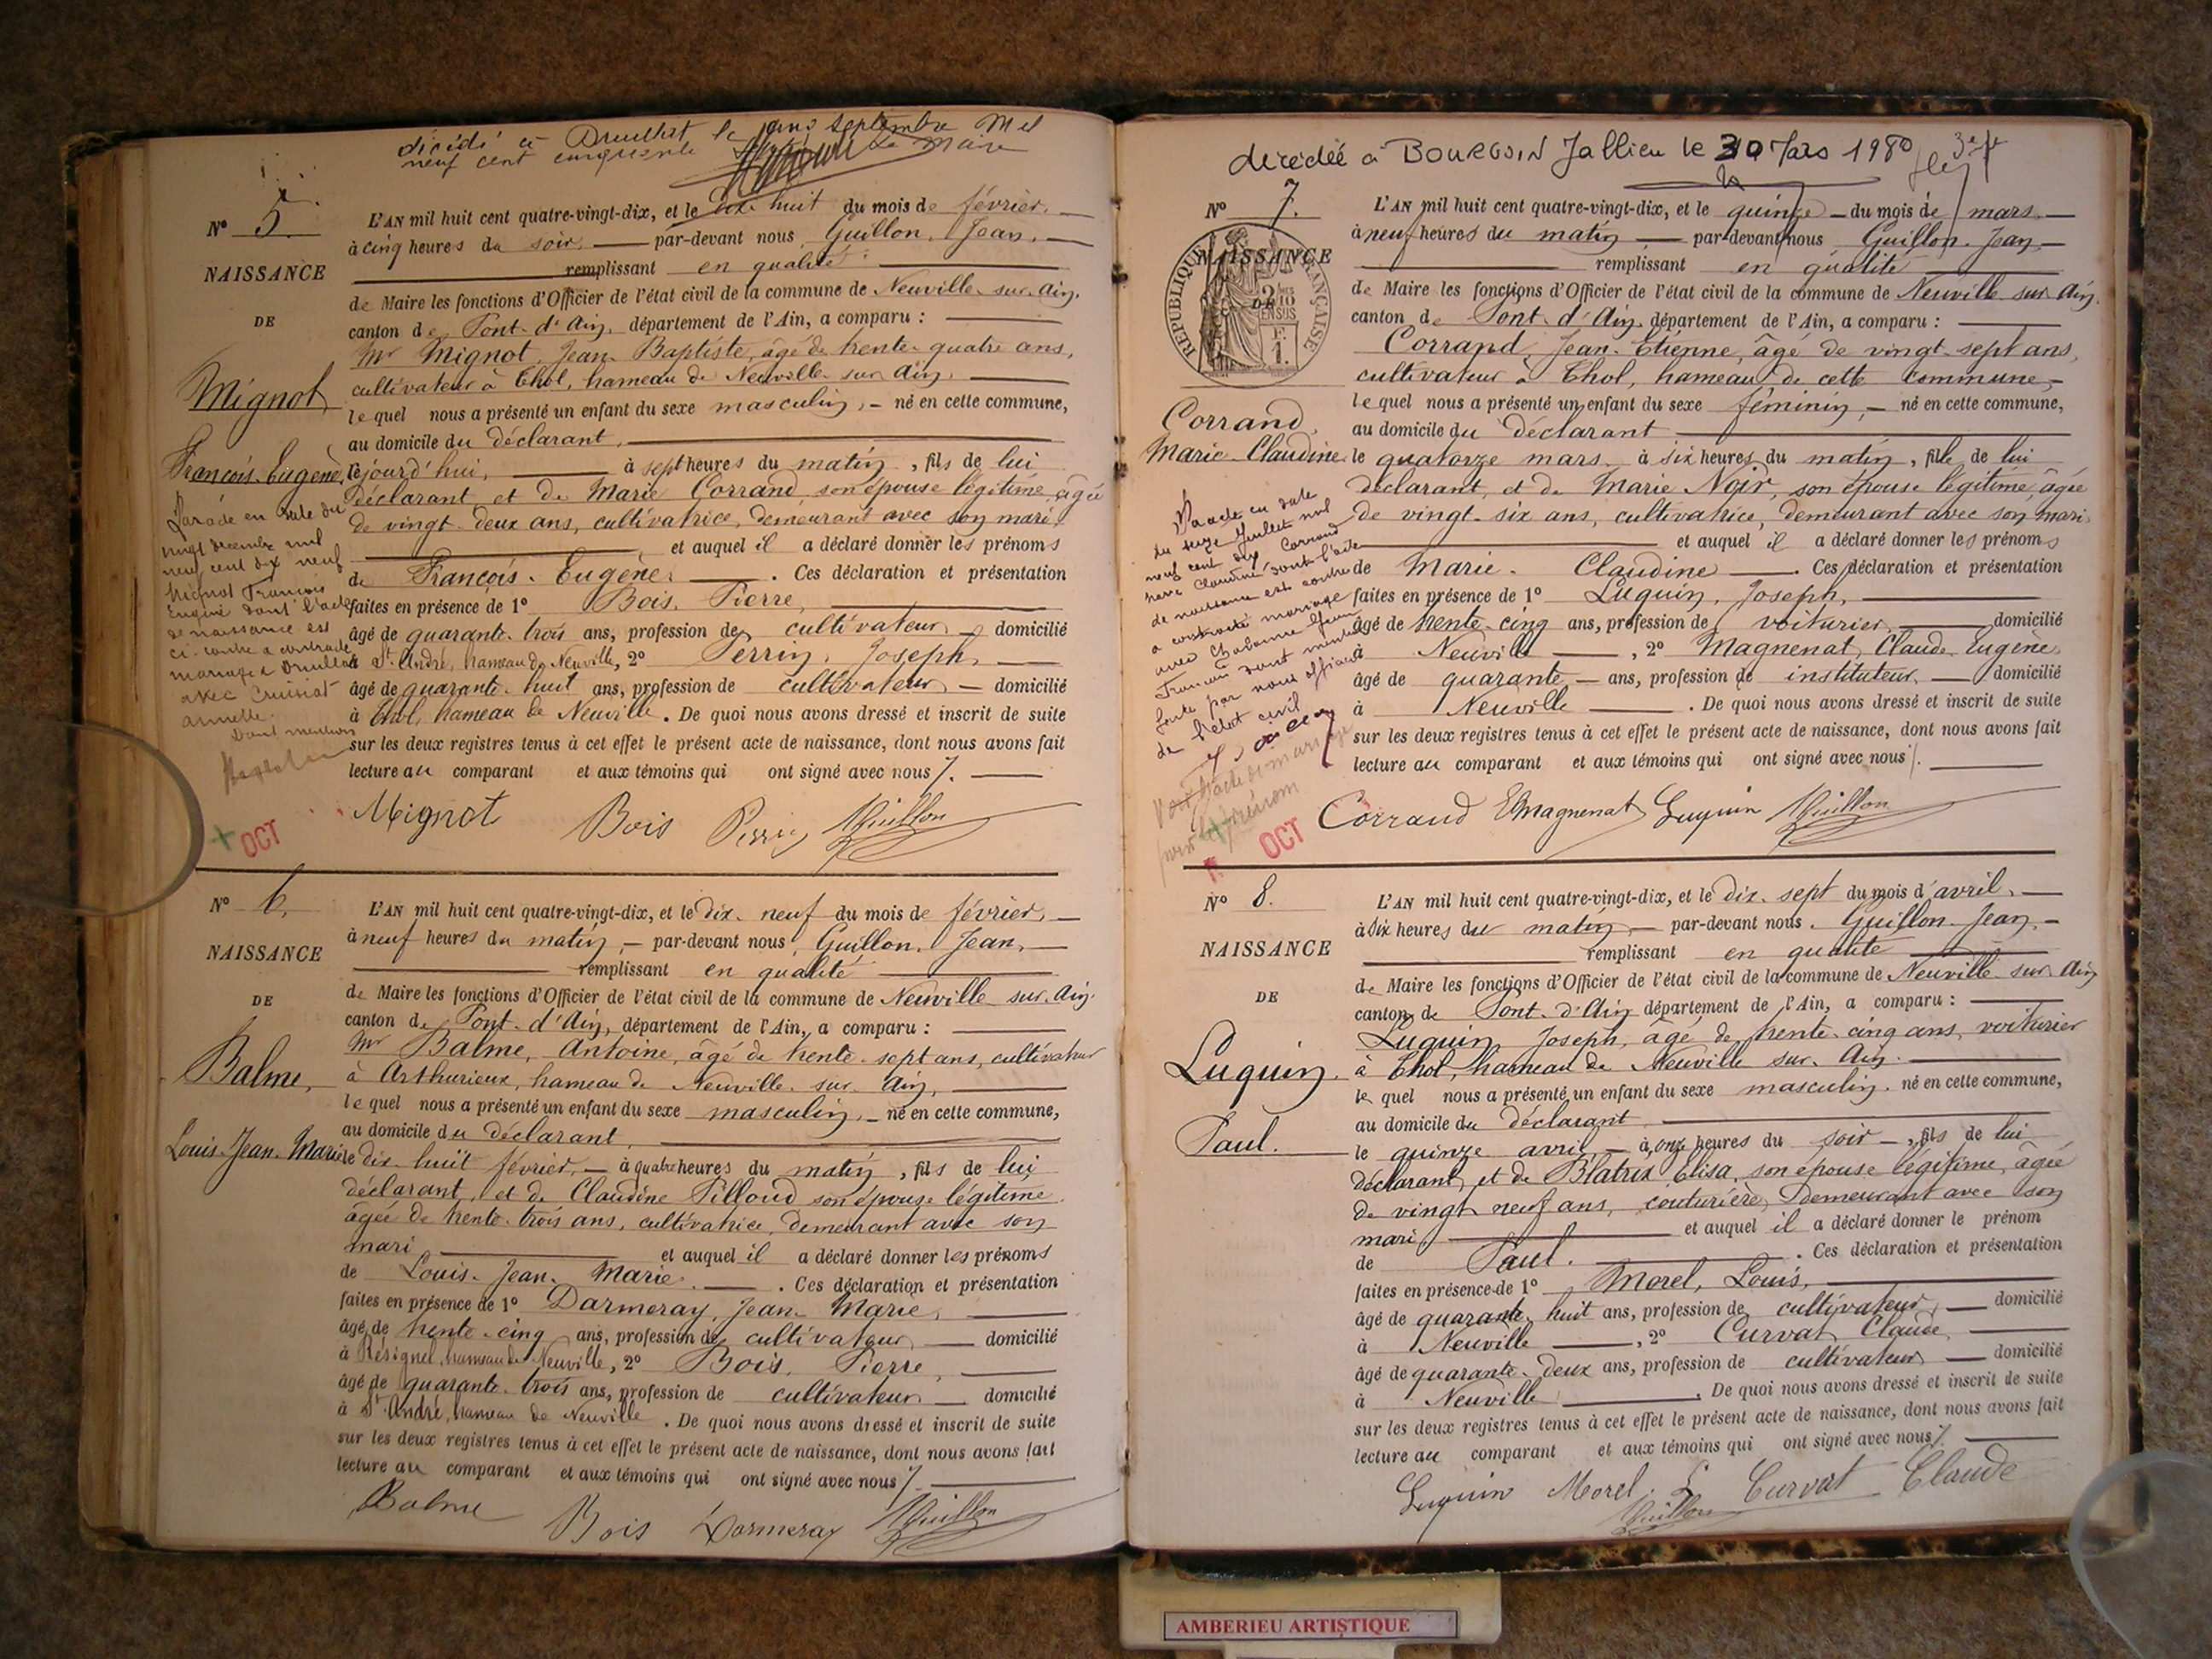 décédé à Druillat le onze septembre mil
neuf cent cinquante Le Maire
N° 5.
NAISSANCE
DE
Mignot
François-Eugène,
L'AN mil huit cent quatre-vingt-dix, et le dix-huit du mois de février.
à cinq heures du soir, par-devant nous Guillon, Jean,
remplissant en qualité
de Maire les fonctions d'Officier de l'état civil de la commune de Neuville-sur-Ain,
canton de Pont-d'Ain, département de l'Ain, a comparu :
Mr Mignot, Jean-Baptiste, âgé de trente-quatre ans,
cultivateur à Thol, hameau de Neuville-sur-Ain,
lequel nous a présenté un enfant du sexe masculin, né en cette commune,
au domicile du déclarant,
lejourd'hui, à sept heures du matin, fils de lui
déclarant et de Marie Corrand, son épouse légitime, âgée
de vingt-deux ans, cultivatrice, demeurant avec son mari,
et auquel il a déclaré donner les prénoms
de François-Eugène. Ces déclaration et présentation
faites en présence de 1° Bois, Pierre,
âgé de quarante-trois ans, profession de cultivateur, domicilié
à St André, hameau de Neuville, 2° Perrin, Joseph,
âgé de quarante-huit ans, profession de cultivateur, domicilié
à Thol, hameau de Neuville. De quoi nous avons dressé et inscrit de suite
sur les deux registres tenus à cet effet le présent acte de naissance, dont nous avons fait
lecture au comparant et aux témoins qui ont signé avec nous.
Par acte en date du
vingt décembre mil
neuf cent dix neuf
Mignot François
Eugène dont l'acte
de naissance est
ci-contre a contracté
mariage à Druillat
avec Cruisiat
armelle.
Dont mention
Mignot Bois Perrin JGuillon
+ OCT
N° 6.
NAISSANCE
DE
Balme,
Louis-Jean-Marie
L'AN mil huit cent quatre-vingt-dix, et le dix-neuf du mois de février,
à neuf heures du matin, par-devant nous Guillon, Jean,
remplissant en qualité
de Maire les fonctions d'Officier de l'état civil de la commune de Neuville-sur-Ain.
canton de Pont-d'Ain, département de l'Ain, a comparu :
Mr Balme, Antoine, âgé de trente-sept ans, cultivateur
à Arthurieux, hameau de Neuville-sur-Ain,
lequel nous a présenté un enfant du sexe masculin, né en cette commune,
au domicile du déclarant,
le dix-huit février, à quatre heures du matin, fils de lui
déclarant, et de Claudine Pilloud son épouse légitime
âgée de trente-trois ans, cultivatrice, demeurant avec son
mari, et auquel il a déclaré donner les prénoms
de Louis-Jean-Marie. Ces déclaration et présentation
faites en présence de 1° Darmeray, Jean-Marie,
âgé de trente-cinq ans, profession de cultivateur, domicilié
à Résignel, hameau de Neuville, 2° Bois, Pierre,
âgé de quarante-trois ans, profession de cultivateur domicilié
à St André, hameau de Neuville. De quoi nous avons dressé et inscrit de suite
sur les deux registres tenus à cet effet le présent acte de naissance, dont nous avons fait
lecture au comparant et aux témoins qui ont signé avec nous
Balme Bois Darmeray JGuillon
décédée à BOURGOIN Jallieu le 30 Mars 1980
N° 7.
NAISSANCE
DE
RÉPUBLIQUE FRANÇAISE
Corrand,
Marie-Claudine
L'AN mil huit cent quatre-vingt-dix, et le quinze du mois de mars.
à neuf heures du matin par-devant nous Guillon, Jean,
remplissant en qualité
de Maire les fonctions d'Officier de l'état civil de la commune de Neuville sur Ain,
canton de Pont-d'Ain département de l'Ain, a comparu :
Corrand, Jean-Etienne, âgé de vingt-sept ans,
cultivateur à Thol, hameau de cette commune,
lequel nous a présenté un enfant du sexe féminin, né en cette commune,
au domicile du déclarant
le quatorze mars à six heures du matin, fille de lui
déclarant, et de Marie Noir, son épouse légitime, âgée
de vingt-six ans, cultivatrice, demeurant avec son mari,
et auquel il a déclaré donner les prénoms
de Marie-Claudine. Ces déclaration et présentation
faites en présence de 1° Luquin, Joseph,
âgé de trente-cinq ans, profession de voiturier, domicilié
à Neuville, 2° Magnenat, Claude-Eugène
âgé de quarante ans, profession de instituteur, domicilié
à Neuville. De quoi nous avons dressé et inscrit de suite
sur les deux registres tenus à cet effet le présent acte de naissance, dont nous avons fait
lecture au comparant et aux témoins qui ont signé avec nous.
Par acte en date
du seize Juillet mil
neuf cent dix Corrand
Marie Claudine dont l'acte
de naissance est contre
a contracté mariage
avec Chabanne Jean
François dont mention
faite par nous officier
de l'état civil
Corrand EMagnenat Luquin JGuillon
OCT
N° 8.
NAISSANCE
DE
Luquin.
Paul.
L'AN mil huit cent quatre-vingt-dix, et le dix-sept du mois d'avril,
à dix heures du matin, par-devant nous Guillon-Jean,
remplissant en qualité
de Maire les fonctions d'Officier de l'état civil de la commune de Neuville-sur-Ain
canton de Pont-d'Ain département de l'Ain, a comparu :
Luquin Joseph, âgé de trente-cinq ans, voiturier
à Thol, hameau de Neuville-sur-Ain
lequel nous a présenté un enfant du sexe masculin, né en cette commune,
au domicile du déclarant
le quinze avril, à onze heures du soir, fils de lui
déclarant, et de Blatrix Elisa, son épouse légitime, âgée
de vingt neuf ans, couturière, demeurant avec son
mari, et auquel il a déclaré donner le prénom
de Paul. Ces déclaration et présentation
faites en présence de 1° Morel, Louis,
âgé de quarante-huit ans, profession de cultivateur, domicilié
à Neuville, 2° Curvat Claude,
âgé de quarante-deux ans, profession de cultivateur domicilié
à Neuville. De quoi nous avons dressé et inscrit de suite
sur les deux registres tenus à cet effet le présent acte de naissance, dont nous avons fait
lecture au comparant et aux témoins qui ont signé avec nous.
Luquin Morel. L Curvat Claude
JGuillon
AMBERIEU ARTISTIQUE